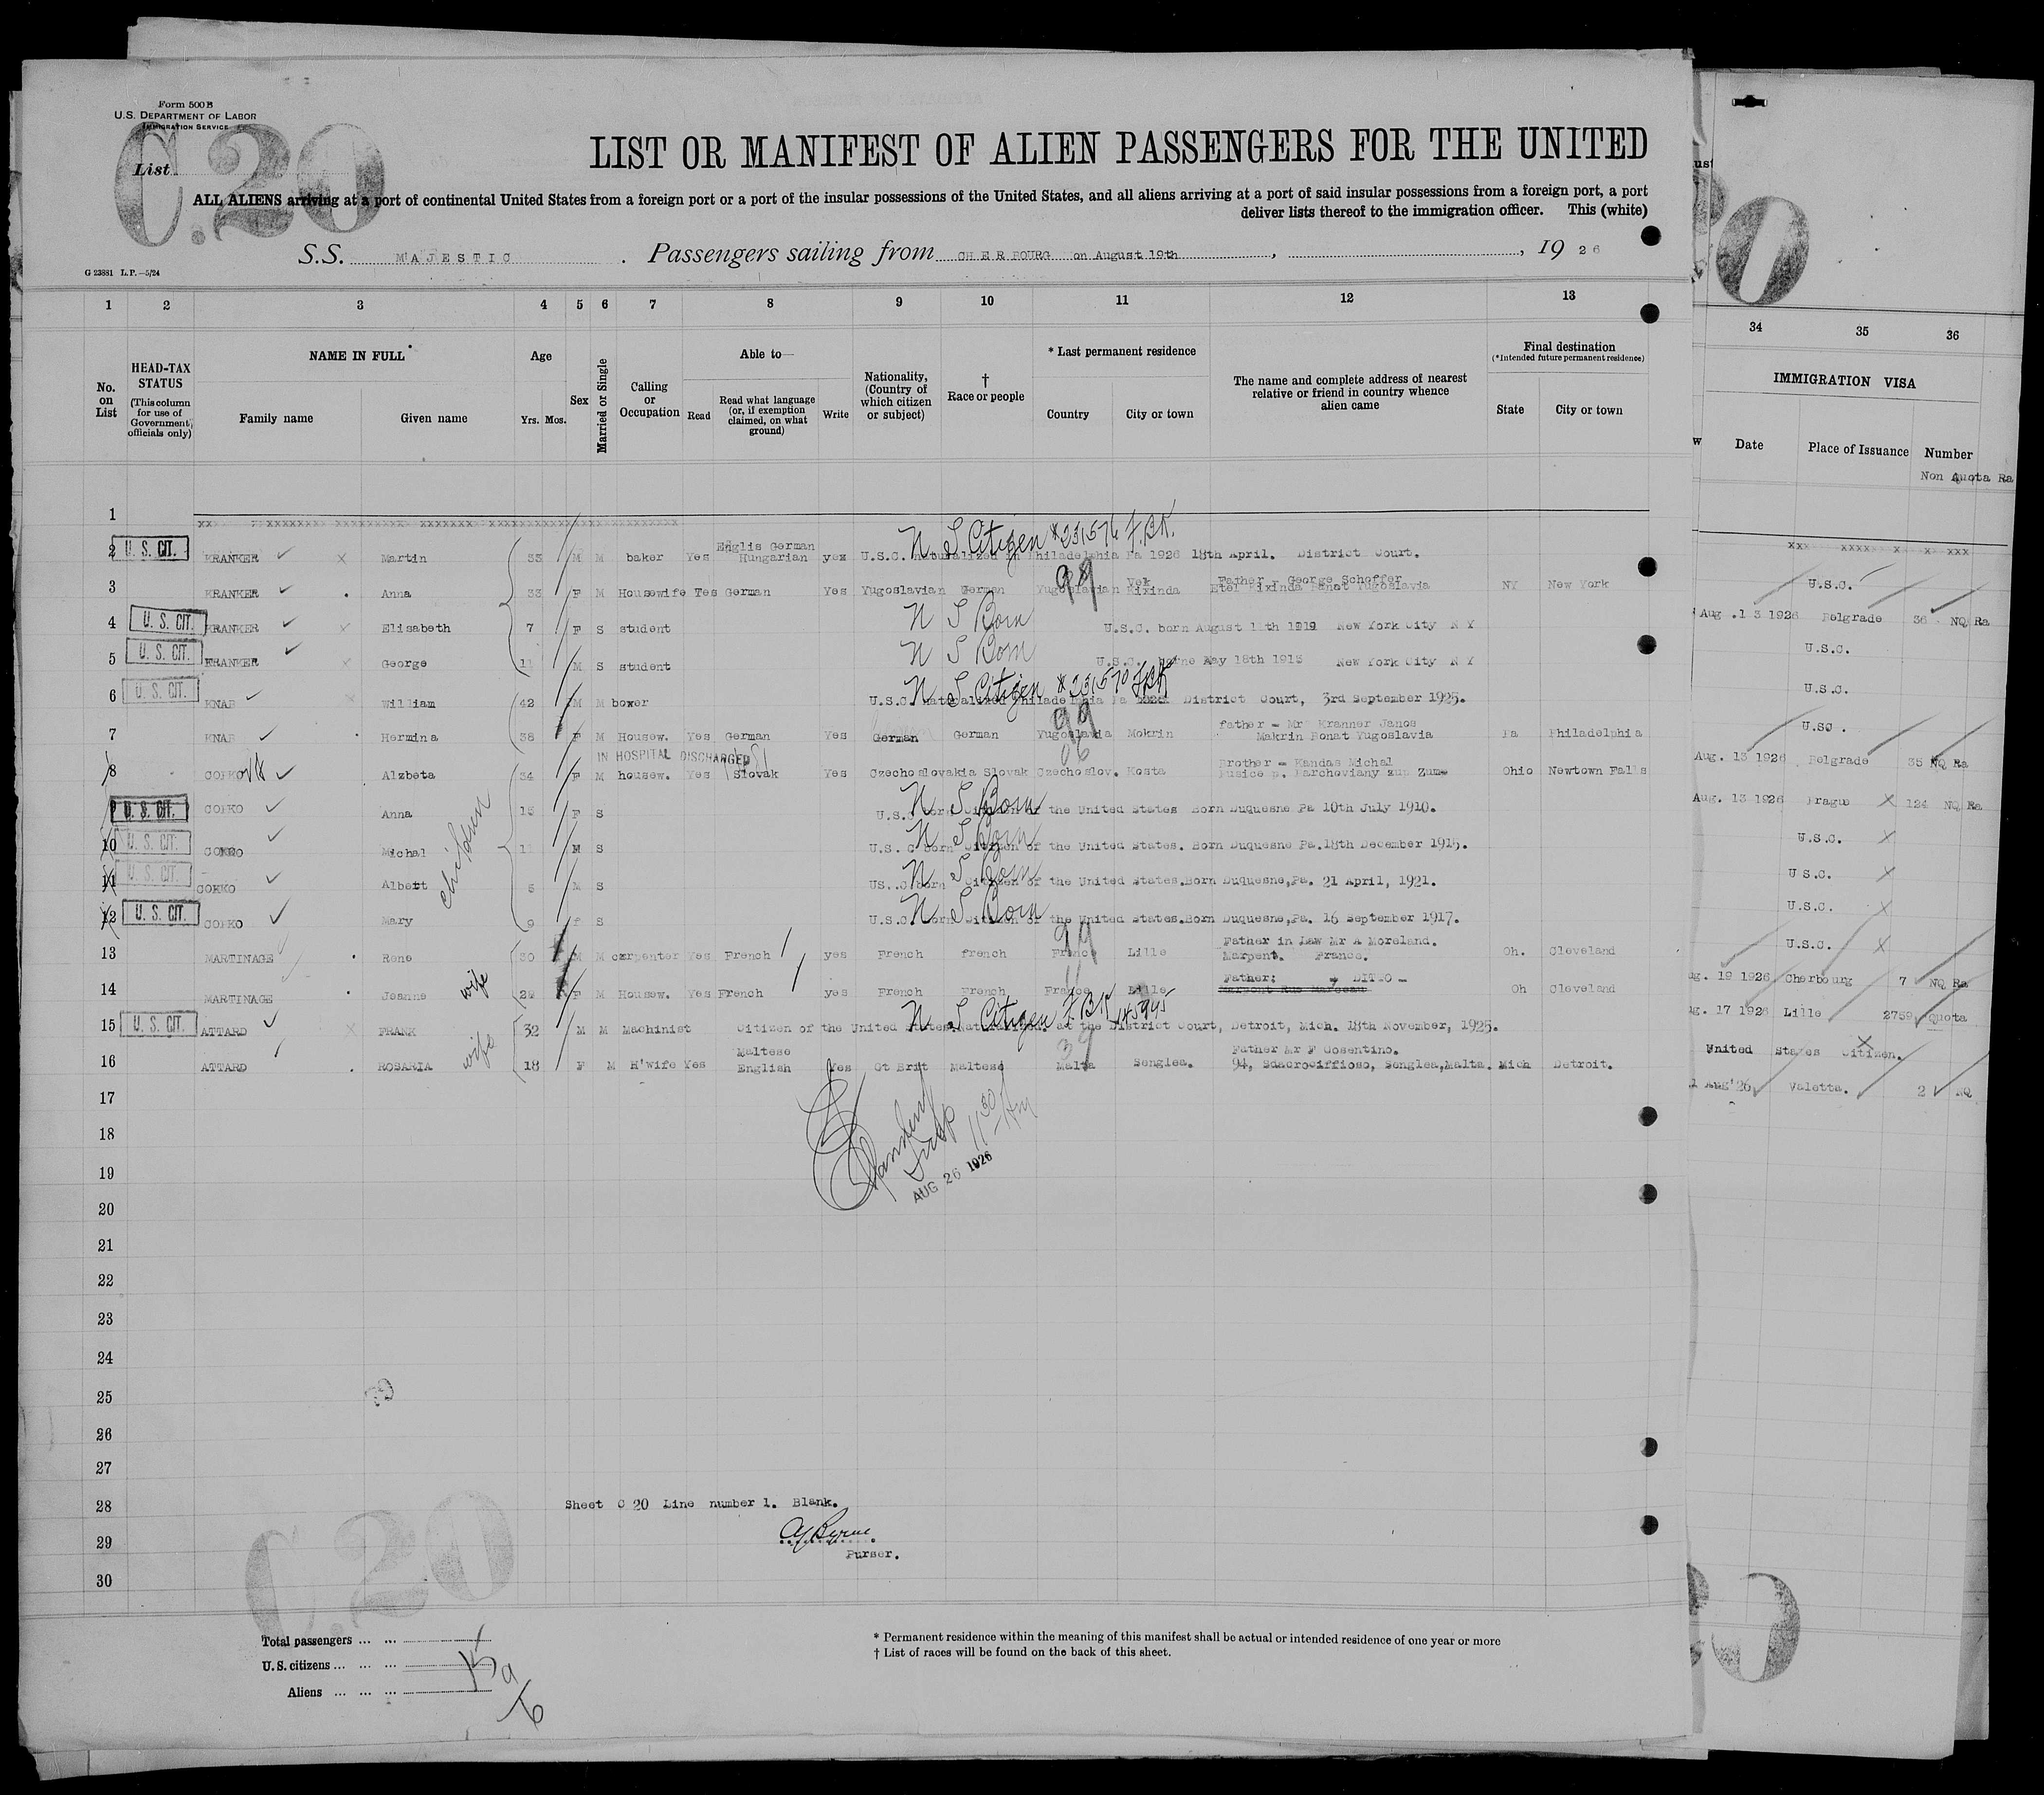 Form 500 B
U.S. DEPARTMENT OF LABOR
IMMIGRATION SERVICE
C.20
List
LIST OR MANIFEST OF ALIEN PASSENGERS FOR THE UNITED
ALL ALIENS arriving at a port of continental United States from a foreign port or a port of the insular possessions of the United States, and all aliens arriving at a port of said insular possessions from a foreign port, a port
deliver lists thereof to the immigration officer. This (white)
S.S. MAJESTIC . Passengers sailing from CHERBOURG on August 19th , , 19 26
G 23881 L.P.—5/24
1 2 3 4 5 6 7 8 9 10 11 12 13
34 35 36
No. on List
HEAD-TAX STATUS (This column for use of Government officials only)
NAME IN FULL
Family name Given name
Age
Yrs. Mos.
Sex
Married or Single
Calling or Occupation
Able to—
Read
Read what language (or, if exemption claimed, on what ground)
Write
Nationality, (Country of which citizen or subject)
† Race or people
* Last permanent residence
Country City or town
The name and complete address of nearest relative or friend in country whence alien came
Final destination
(*Intended future permanent residence)
State City or town
IMMIGRATION VISA
Date Place of Issuance Number
Non Quota Ra
1
2 U. S. CIT. KRANKER Martin 33 M M baker Yes Englis German Hungarian yex U.S.C. naturalized in Philadelphia Pa 1926 18th April. District Court.
N S Citizen *231576 F.BK.
3 KRANKER Anna 33 F M Housewife Tes German Yes Yugoslavian German Yugoslavian Vek Kixinda Father - George Scheffer Etel Kixinda Banat Yugoslavia NY New York
99
4 U. S. CIT. KRANKER Elisabeth 7 F S student U.S.C. born August 11th 1919 New York City N Y
N S Born
5 U. S. CIT. KRANKER George 11 M S student U.S.C. borne May 18th 1915 New York City N Y
N S Born
6 U. S. CIT. KNAB William 42 M M boxer U.S.C. naturalized Philadelphia Pa District Court, 3rd September 1925.
N S Citizen *231570 FBK
7 KNAB Hermina 38 F M Housew. Yes German Yes German German Yugoslavia Mokrin father - Mr Kranner Janos Makrin Bonat Yugoslavia Pa Philadelphia
99
IN HOSPITAL DISCHARGED
8 COFKO Alzbeta 34 F M housew. Yes Slovak Yes Czechoslovakia Slovak Czechoslov. Kosta Brother - Kandas Michal Dusice p. Parchoviany zup Zume Ohio Newtown Falls
06
children
9 U. S. CIT. COFKO Anna 15 F S U.S.C born Citizen of the United States Born Duquesne Pa 10th July 1910.
N S Born
10 U. S. CIT. COFKO Michal 11 M S U.S. C born Citizen of the United States. Born Duquesne Pa.18th December 1915.
N S Born
11 U. S. CIT. COFKO Albert 5 M S US..C born Citizen of the United States.Born Duquesne,Pa. 21 April, 1921.
N S Born
12 U. S. CIT. COFKO Mary 9 F S U.S.C born Citizen of the United States.Born Duquesne,Pa. 16 September 1917.
N S Born
13 MARTINAGE Rene 30 M M carpenter Yes French yes French french France Lille Father in Law Mr A Moreland. Marpent. France. Oh. Cleveland
99
14 MARTINAGE Jeanne wife 29 F M Housew. Yes French yes French French France Lille Father: DITTO - Oh Cleveland
15 U. S. CIT. ATTARD FRANK 32 M M Machinist Citizen of the United States,Naturalized at the District Court, Detroit, Mich. 18th November, 1925.
N S Citizen F.BK 145945
16 ATTARD ROSARIA wife 18 F M H'wife Yes Maltese English Yes Gt Brit Maltese Malta Senglea. Father Mr F Cosentino. 94, Sdacrociffioso, Senglea,Malta. Mich Detroit.
39
17
18
19
20
21
22
23
24
25
26
27
28
29
30
U.S.C.
Aug .13 1926 Belgrade 36 NQ Ra
U.S.C.
U.S.C.
U.SC .
Aug. 13 1926 Belgrade 35 NQ Ra
Aug. 13 1926 Prague X 124 NQ Ra
U.S.C. X
U S.C. X
U.S.C. X
U.S.C. X
ug. 19 1926 Cherbourg 7 NQ Ra
ug. 17 1926 Lille 2759 Quota
United States Citizen.
1 Aug'26 Valetta. 2 NQ
11 30 AM
AUG 26 1926
Sheet C 20 Line number 1. Blank.
A Byrne
Purser.
C.20
Total passengers ... ... 15
U.S. citizens ... ... ... 9
Aliens ... ... ... 6
* Permanent residence within the meaning of this manifest shall be actual or intended residence of one year or more
† List of races will be found on the back of this sheet.